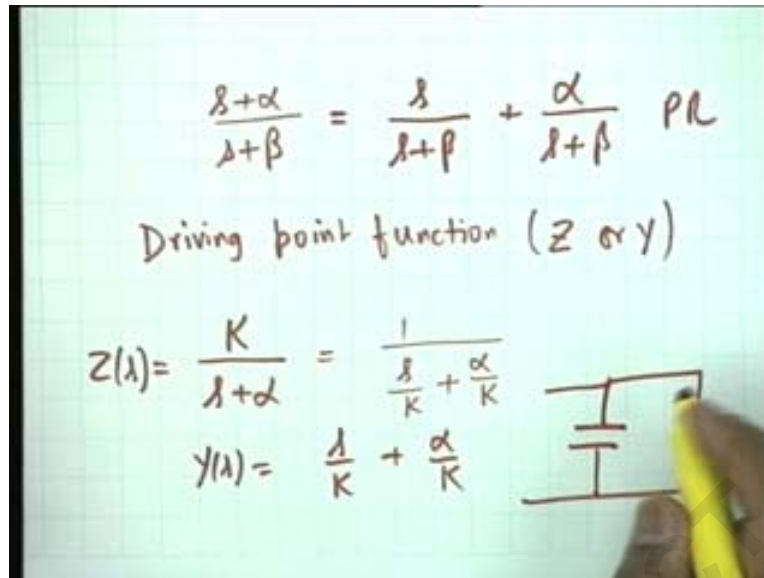 (s+α)/(s+β) = s/(s+β) + α/(s+β) PR
Driving point function (Z or Y)
Z(s) = K/(s+α) = 1/(s/K + α/K)
Y(s) = s/K + α/K